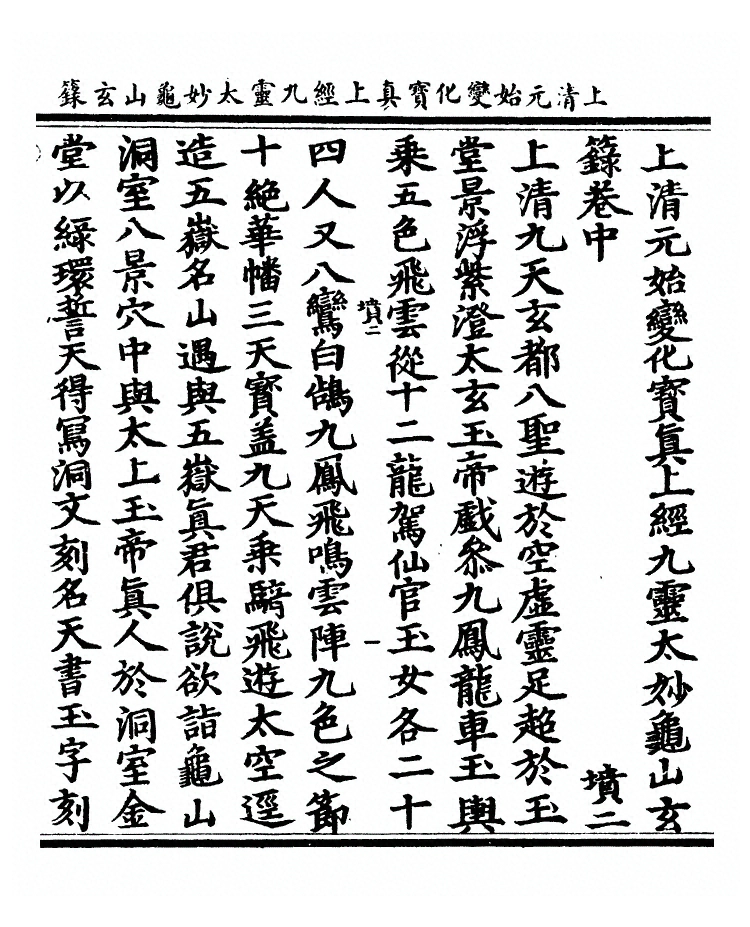 上清元始變化寶真上經九靈太妙龜山玄籙
上清元始變化寶真上經九靈太妙龜山玄
籙卷中
墳二
上清九天玄都八聖遊於空虛靈足超於玉
堂景浮紫澄太玄玉帝戲叅九鳳龍車玉輿
乘五色飛雲從十二龍駕仙官玉女各二十
墳二
一
四人又八鸞白鵠九鳳飛鳴雲陣九色之節
十絕華幡三天寶蓋九天乘騎飛遊太空逕
造五嶽名山遇與五嶽真君俱說欲詣龜山
洞室八景穴中與太上玉帝真人於洞室金
堂以綠環誓天得寫洞文刻名天書玉字刻